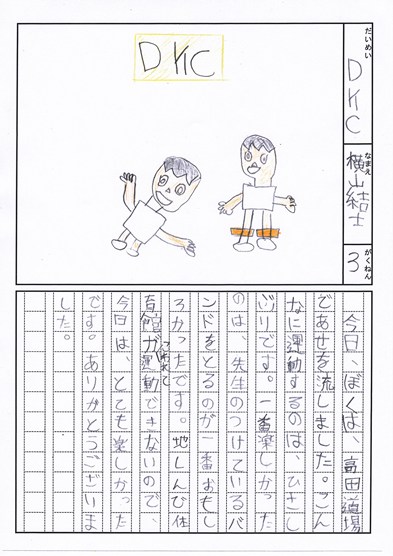 DKC
だいめい
DKC
なまえ
横山結士
がくねん
3
今日、ぼくは、高田道場
であせを流しました。こん
なに運動するのは、ひさし
ぶりです。一番楽しかった
のは、先生のつけているバ
ンドをとるのが一番おもし
ろかったです。地しんで体
育館が運動できないので、
今日は、とても楽しかった
です。ありがとうございま
した。